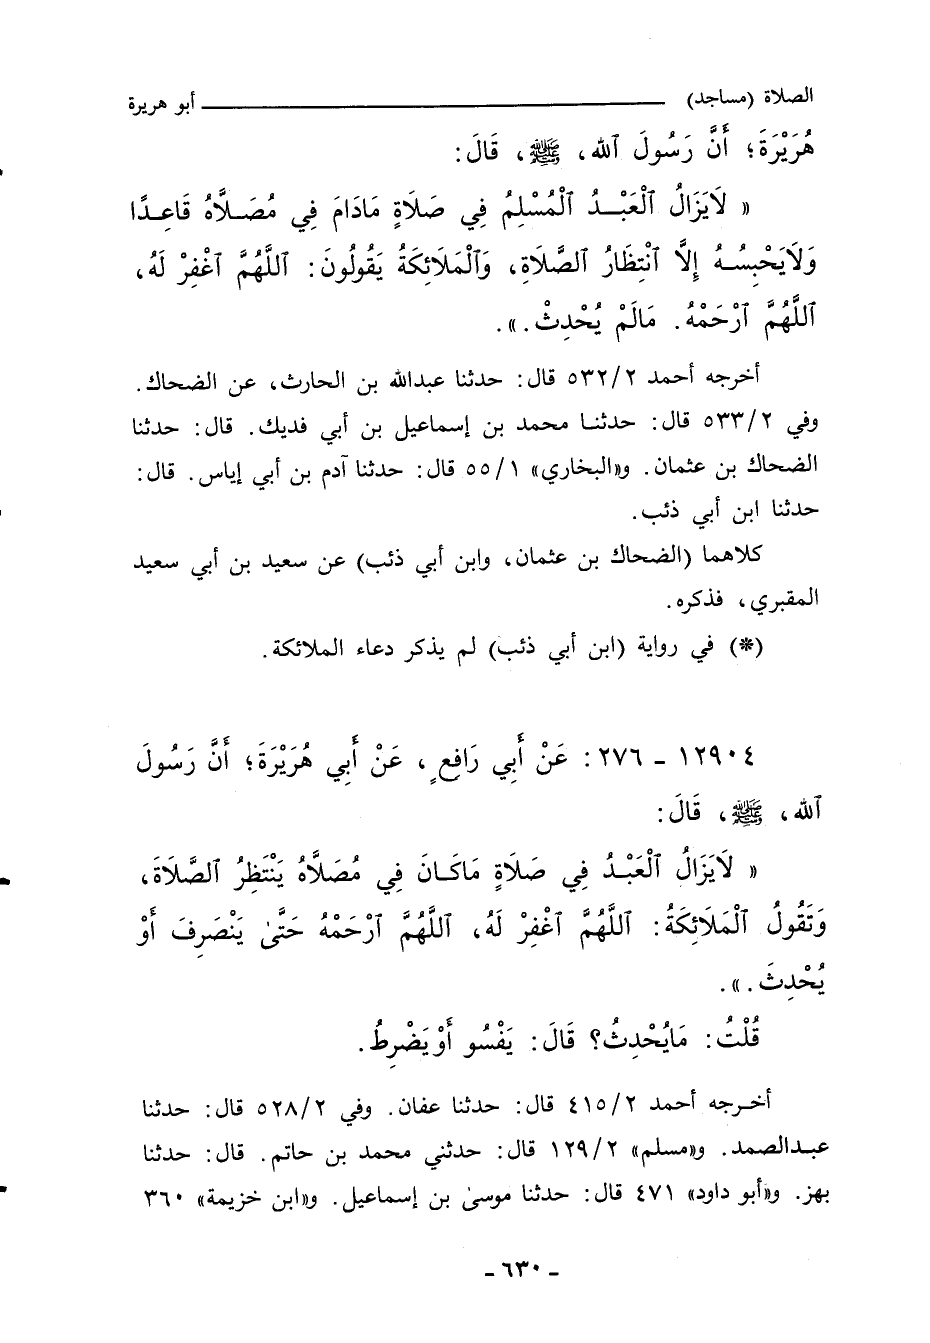 الصلاة (مساجد) ــــــــــــــــــــــــــــــــ أبو هريرة
هُرَيْرَةَ؛ أَنَّ رَسُولَ ٱللهِ، ﷺ، قَالَ:
« لَايَزَالُ ٱلْعَبْـدُ ٱلْمُسْلِمُ فِي صَلَاةٍ مَادَامَ فِي مُصَـلَّاهُ قَاعِـدًا
وَلَايَحْبِسُـهُ إِلَّا ٱنْتِظَارُ ٱلصَّلَاةِ، وَٱلْمَلَائِكَةُ يَقُولُونَ: ٱللَّهُمَّ ٱغْفِرْ لَهُ،
ٱللَّهُمَّ ٱرْحَمْهُ. مَالَمْ يُحْدِثْ.».
أخرجه أحمد ٥٣٢/٢ قال: حدثنا عبدالله بن الحارث، عن الضحاك.
وفي ٥٣٣/٢ قال: حدثنـا محمد بن إسماعيل بن أبي فديك. قال: حدثنا
الضحاك بن عثمان. و«البخاري» ٥٥/١ قال: حدثنا آدم بن أبي إياس. قال:
حدثنا ابن أبي ذئب.
كلاهما (الضحاك بن عثمان، وابن أبي ذئب) عن سعيد بن أبي سعيد
المقبري، فذكره.
(*) في رواية (ابن أبي ذئب) لم يذكر دعاء الملائكة.
١٢٩٠٤ - ٢٧٦: عَنْ أَبِي رَافِعٍ، عَنْ أَبِي هُرَيْرَةَ؛ أَنَّ رَسُولَ
ٱللهِ، ﷺ، قَالَ:
« لَايَزَالُ ٱلْعَبْدُ فِي صَلَاةٍ مَاكَـانَ فِي مُصَلَّاهُ يَنْتَظِرُ ٱلصَّلَاةَ،
وَتَقُولُ ٱلْمَلَائِكَةُ: ٱللَّهُمَّ ٱغْفِرْ لَهُ، ٱللَّهُمَّ ٱرْحَمْهُ حَتَّىٰ يَنْصَرِفَ أَوْ
يُحْدِثَ.».
قُلْتُ: مَايُحْدِثُ؟ قَالَ: يَفْسُو أَوْ يَضْرِطُ.
أخـرجه أحمد ٤١٥/٢ قال: حدثنا عفان. وفي ٥٢٨/٢ قال: حدثنا
عبـدالصمد. و«مسلم» ١٢٩/٢ قال: حدثني محمد بن حاتم. قال: حدثنا
بهز. و«أبو داود» ٤٧١ قال: حدثنا موسىٰ بن إسماعيل. و«ابن خزيمة» ٣٦٠
- ٦٣٠ -